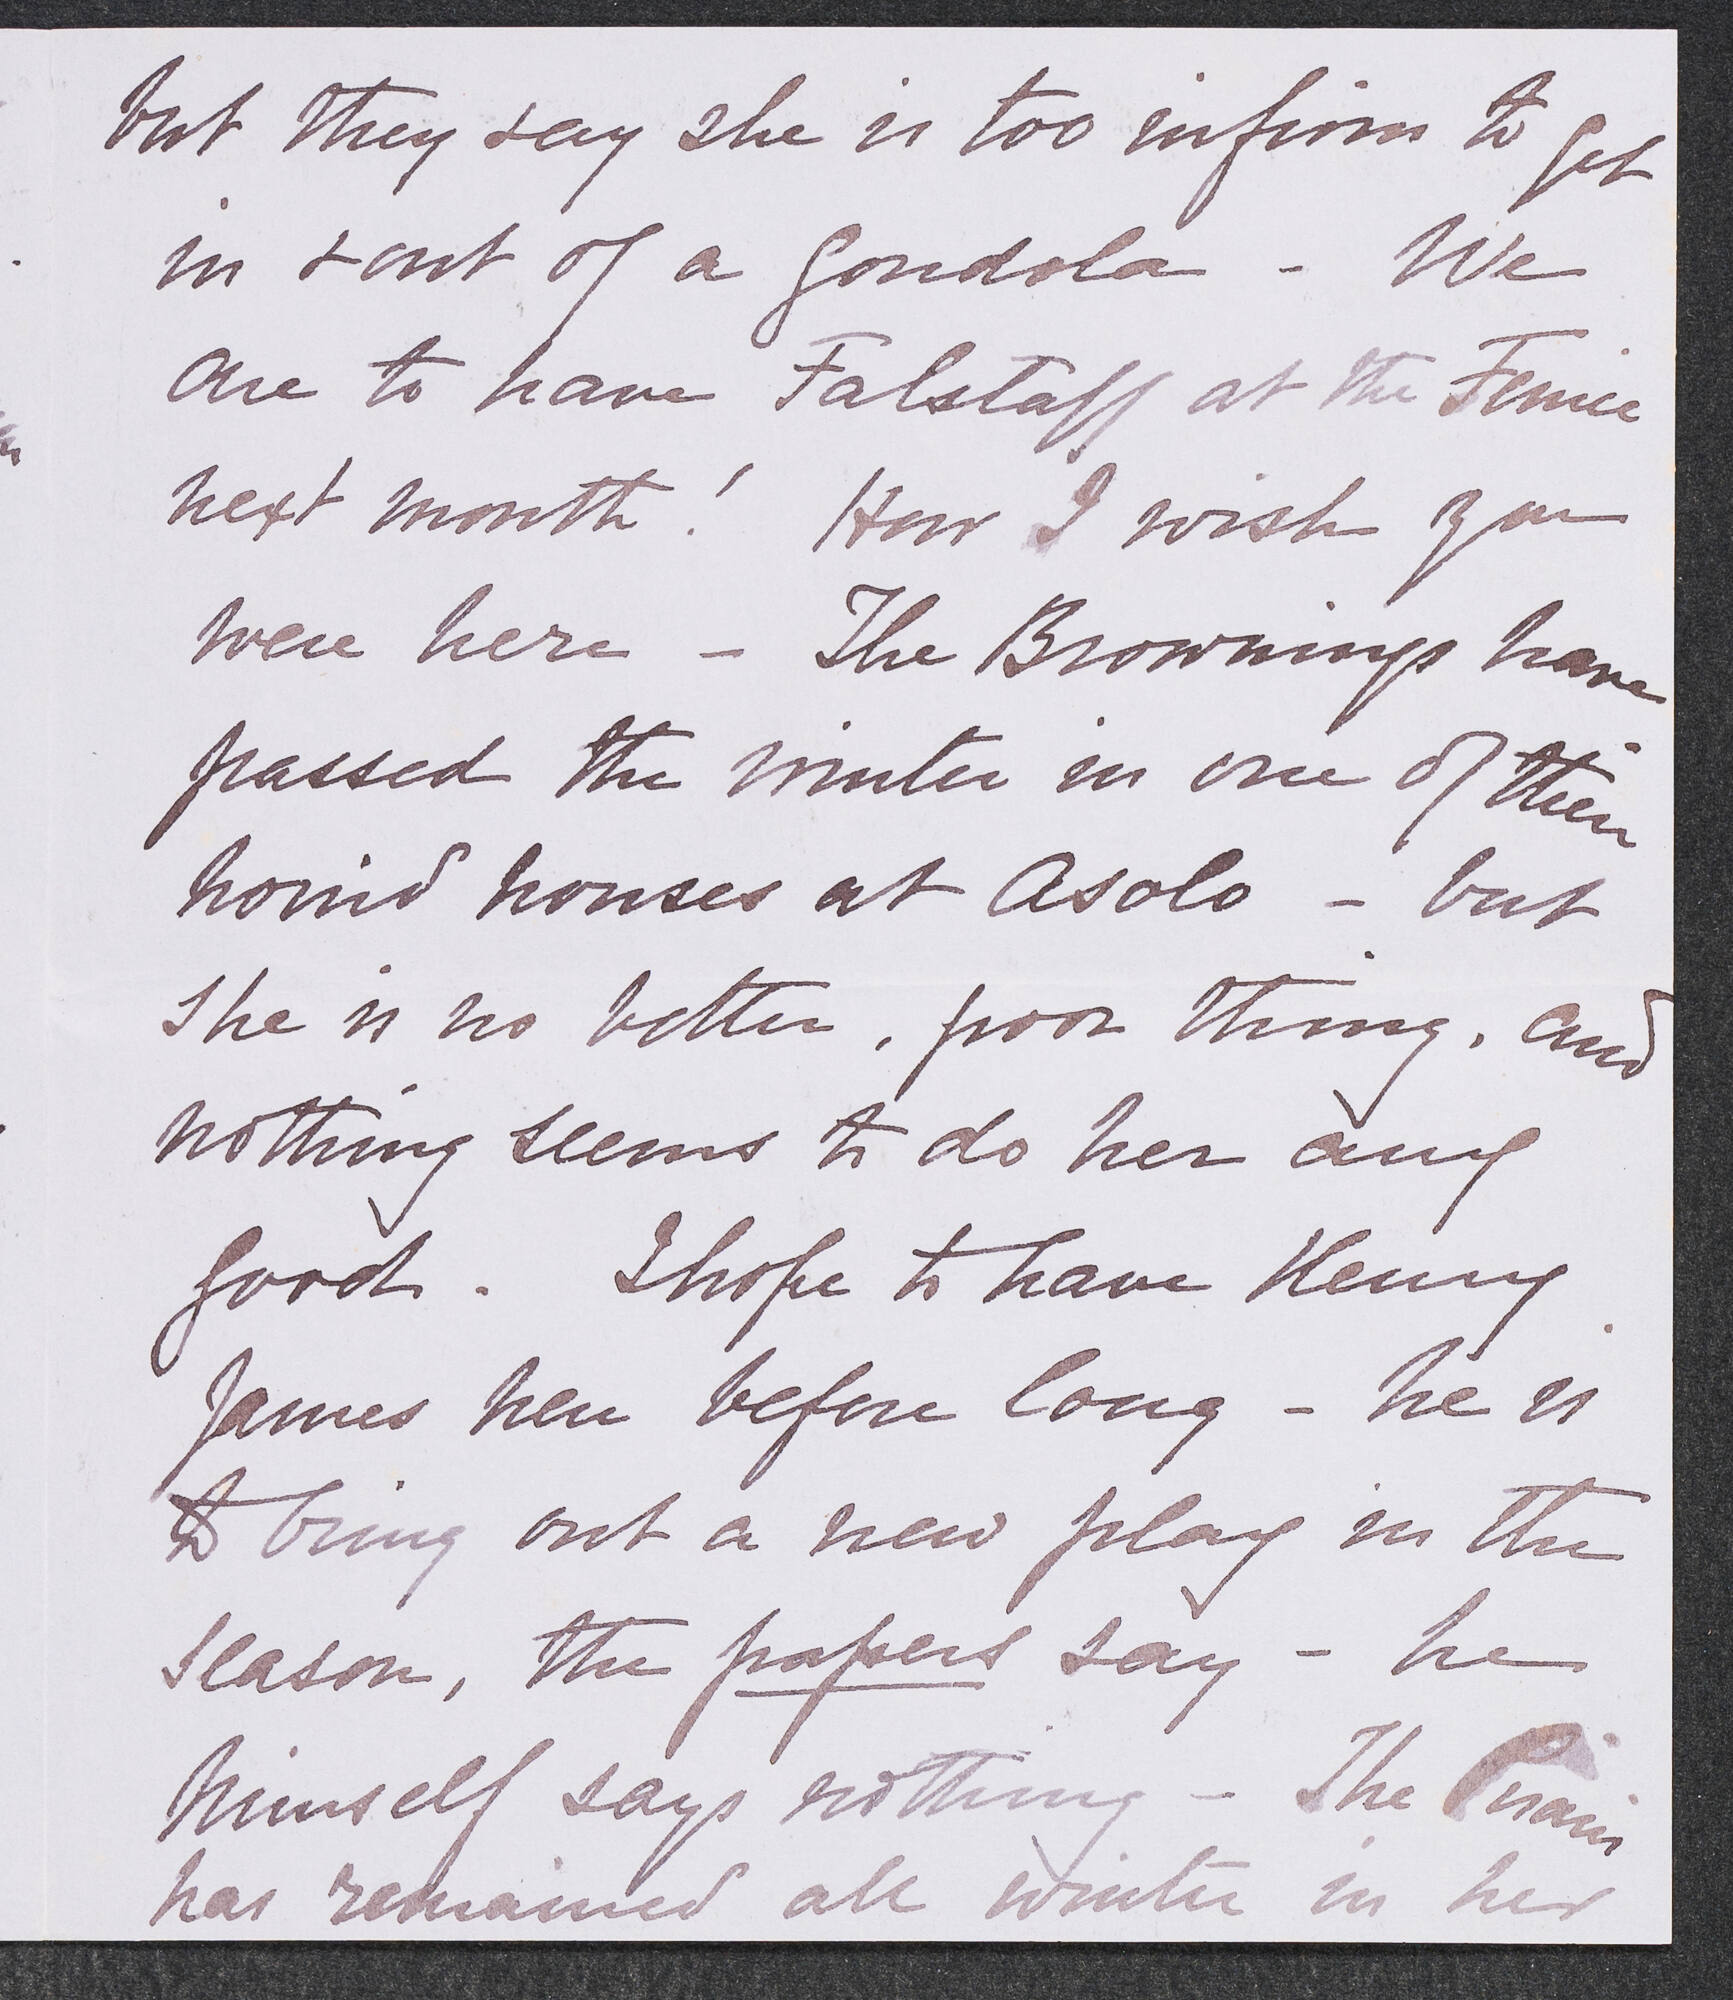 but they say she is too infirm to get
in & out of a gondola - We
are to have Falstaff at the Fenice
next month! How I wish you
were here - The Brownings have
passed the winter in one of their
horrid houses at Asolo - but
she is no better, poor thing, and
nothing seems to do her any
good. I hope to have Henry
James here before long - he is
to bring out a new play in the
season, the papers say - he
himself says nothing - The
has remained all winter in her